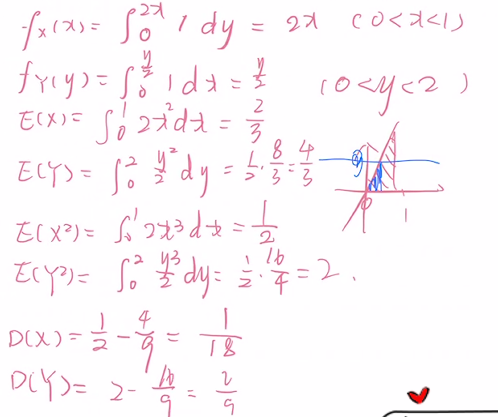 fₓ(x) = ∫₀²ˣ 1 dy = 2x (0<x<1)
fY(y) = ∫₀^(y/2) 1 dx = y/2 (0<y<2)
E(X) = ∫₀¹ 2x² dx = 2/3
E(Y) = ∫₀² y²/2 dy = 1/2 · 8/3 = 4/3
y
0 1
E(X²) = ∫₀¹ 2x³ dx = 1/2
E(Y²) = ∫₀² y³/2 dy = 1/2 · 16/4 = 2.
D(X) = 1/2 - 4/9 = 1/18
D(Y) = 2 - 16/9 = 2/9